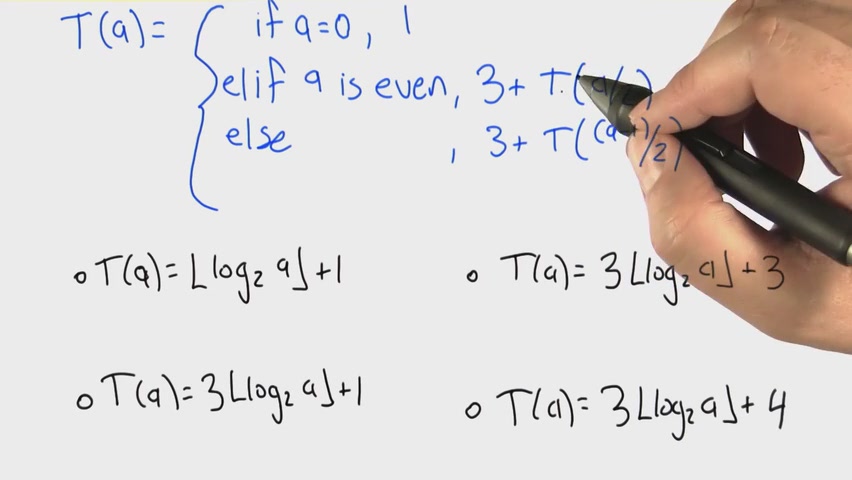 T(a) = { if a=0, 1
elif a is even, 3 + T(a/2)
else , 3 + T((a-1)/2)
T(a) = ⌊log₂ a⌋ + 1
T(a) = 3⌊log₂ a⌋ + 3
T(a) = 3⌊log₂ a⌋ + 1
T(a) = 3⌊log₂ a⌋ + 4